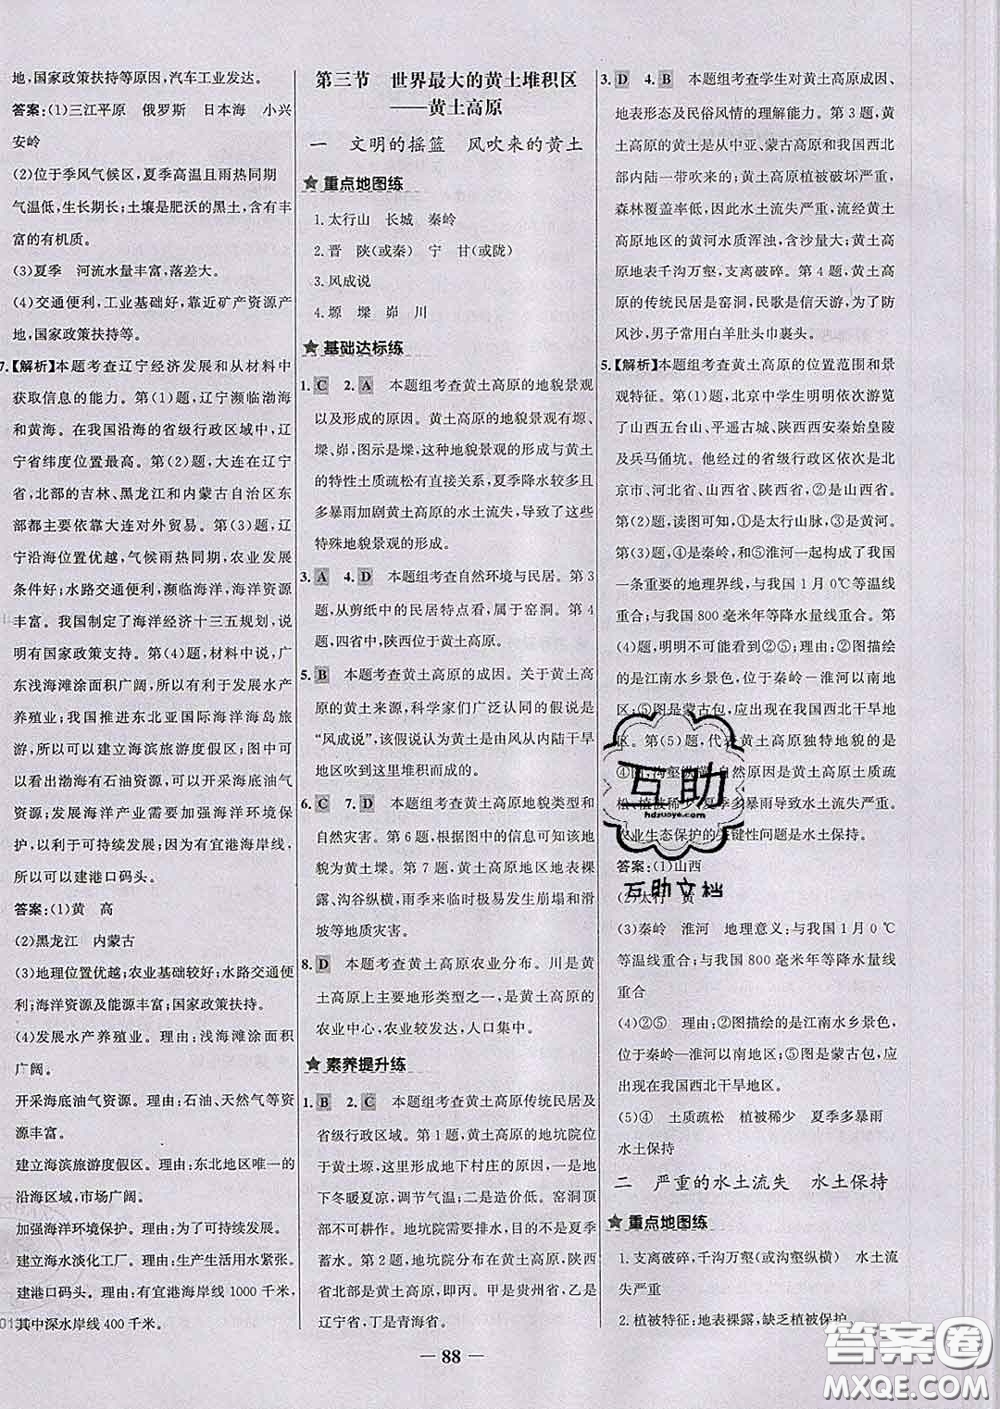 地,国家政策扶持等原因,汽车工业发达。
答案:(1)三江平原　俄罗斯　日本海　小兴
安岭
(2)位于季风气候区,夏季高温且雨热同期
气温低,生长期长;土壤是肥沃的黑土,含有丰
富的有机质。
(3)夏季　河流水量丰富,落差大。
(4)交通便利,工业基础好,靠近矿产资源产
地,国家政策扶持等。
7.【解析】本题考查辽宁经济发展和从材料中
获取信息的能力。第(1)题,辽宁濒临渤海
和黄海。在我国沿海的省级行政区域中,辽
宁省纬度位置最高。第(2)题,大连在辽宁
省,北部的吉林、黑龙江和内蒙古自治区东
部都主要依靠大连对外贸易。第(3)题,辽
宁沿海位置优越,气候雨热同期,农业发展
条件好;水路交通便利,濒临海洋,海洋资源
丰富。我国制定了海洋经济十三五规划,说
明有国家政策支持。第(4)题,材料中说,广
东浅海滩涂面积广阔,所以有利于发展水产
养殖业;我国推进东北亚国际海洋海岛旅
游,所以可以建立海滨旅游度假区;图中可
以看出渤海有石油资源,可以开采海底油气
资源;发展海洋产业需要加强海洋环境保
护,以实现可持续发展;因为有宜港海岸线,
所以可以建港口码头。
答案:(1)黄　高
(2)黑龙江　内蒙古
(3)地理位置优越;农业基础较好;水路交通便
利;海洋资源及能源丰富;国家政策扶持。
(4)发展水产养殖业。理由:浅海滩涂面积
广阔。
开采海底油气资源。理由:石油、天然气等资
源丰富。
建立海滨旅游度假区。理由:东北地区唯一的
沿海区域,市场广阔。
加强海洋环境保护。理由:为了可持续发展。
建立海水淡化工厂。理由:生产生活用水紧张。
建港口码头。理由:有宜港海岸线1000千米,
其中深水岸线400千米。
第三节　世界最大的黄土堆积区
——黄土高原
一　文明的摇篮　风吹来的黄土
★重点地图练
1.太行山　长城　秦岭
2.晋　陕(或秦)　宁　甘(或陇)
3.风成说
4.塬　墚　峁　川
★基础达标练
1. C　2. A　本题组考查黄土高原的地貌景观
以及形成的原因。黄土高原的地貌景观有塬、
墚、峁,图示是墚,这种地貌景观的形成与黄土
的特性土质疏松有直接关系,夏季降水较多且
多暴雨加剧黄土的水土流失,导致了这些
特殊地貌景观的形成。
3. A　4. D　本题组考查自然环境与民居。第3
题,从剪纸中的民居特点看,属于窑洞。第4
题,四省中,陕西位于黄土高原。
5. B　本题考查黄土高原的成因。关于黄土高
原的黄土来源,科学家们广泛认同的假说是
“风成说”,该假说认为黄土是由风从内陆干旱
地区吹到这里堆积而成的。
6. C　7. D　本题组考查黄土高原地貌类型和
自然灾害。第6题,根据图中的信息可知该地
貌为黄土墚。第7题,黄土高原地区地表裸
露、沟谷纵横,雨季来临时极易发生崩塌和滑
坡等地质灾害。
8. D　本题考查黄土高原农业分布。川是黄土
高原上主要地形类型之一,是黄土高原的
农业中心,农业较发达,人口集中。
★素养提升练
1. B　2. C　本题组考查黄土高原传统民居及
省级行政区域。第1题,黄土高原的地坑院位于
地下,这里采用地下村庄的原因,一是由于地
下冬暖夏凉,温度适宜;二是造价低。窑洞顶
部不可耕作。地坑院需要排水,目的不是夏季
蓄水。第2题,地坑院分布在黄土高原,陕西
省的北部在黄土高原,即丙。甲是贵州省,乙是
辽宁省,丁是青海省。
3. D　4. B　本题组考查学生对黄土高原成因、
地表形态及民俗风情的理解能力。第3题,黄
土高原的黄土是从中亚、蒙古高原和我国西北
部内陆一带吹来的;黄土高原植被破坏严重,
森林覆盖率低,因此水土流失严重,流经黄土
高原地区的黄河水质浑浊,含沙量大;黄土高
原地表千沟万壑,支离破碎。第4题,黄土高原
的传统民居是窑洞,民歌是信天游,为了防
风沙,男子常用白羊肚头巾裹头。
5.【解析】本题考查黄土高原的位置范围和景
观特征。第(1)题,北京中学生明明依次游览
了山西五台山、平遥古城、陕西西安秦始皇陵
及兵马俑坑。他经过的省级行政区依次是北
京市、河北省、山西省、陕西省,②是山西省。
第(2)题,读图可知,①是太行山脉,③是黄河。
第(3)题,④是秦岭和⑤淮河一起构成了我国
一条重要的地理界线,与我国1月0℃等温线
重合,与我国800毫米年等降水量线重合。第
(4)题,明明不可能看到②⑤;理由:②图描绘
的是江南水乡景色,位于秦岭—淮河以南地
区;⑤图是蒙古包,应出现在我国西北干旱地
区。第(5)题,代表黄土高原独特地貌的是
④图;沟壑纵横,自然原因是黄土土质疏
松、植被稀少、夏季多暴雨导致水土流失严重。
农业生态保护的关键性问题是水土保持。
答案:(1)山西
(2)太行　黄
(3)秦岭　淮河　地理意义:与我国1月0℃
等温线重合;与我国800毫米年等降水量线
重合
(4)②⑤　理由:②图描绘的是江南水乡景色,
位于秦岭—淮河以南地区;⑤图是蒙古包,应
出现在我国西北干旱地区。
(5)④　土质疏松　植被稀少　夏季多暴雨
水土保持
二　严重的水土流失　水土保持
★重点地图练
1.支离破碎,千沟万壑(或沟壑纵横)　水土流
失严重
2.植被稀少,地表裸露,缺乏植被保护。
— 88 —
互助
hdzuoye.com
互助文档
答案圈
MXQE.COM